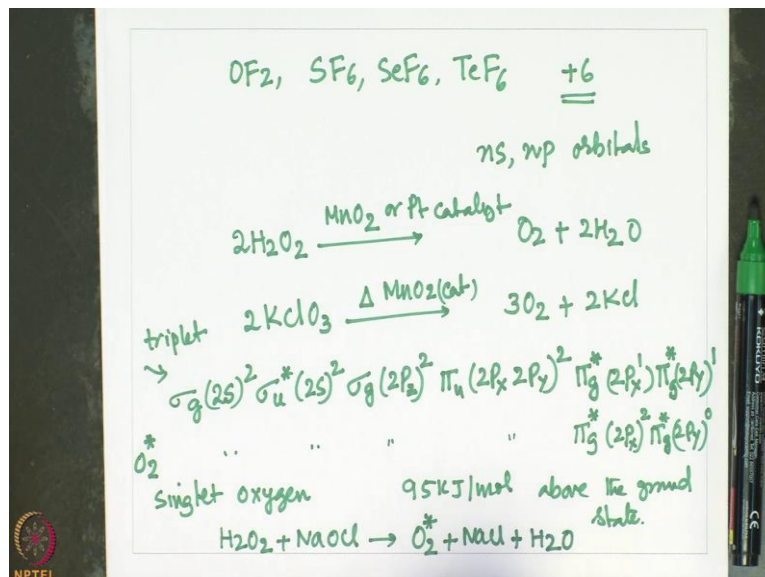 OF2, SF6, SeF6, TeF6 +6
ns, np orbitals
2H2O2 MnO2 or Pt catalyst → O2 + 2H2O
2KClO3 Δ MnO2(cat) → 3O2 + 2KCl
triplet
σg(2s)² σu*(2s)² σg(2Pz)² πu(2Px 2Py)² πg*(2Px¹) πg*(2Py)¹
O2* " " " " πg*(2Px)² πg*(2Py)⁰
singlet oxygen 95KJ/mol above the ground state.
H2O2 + NaOCl → O2* + NaCl + H2O
NPTEL
KOKUYO
CE